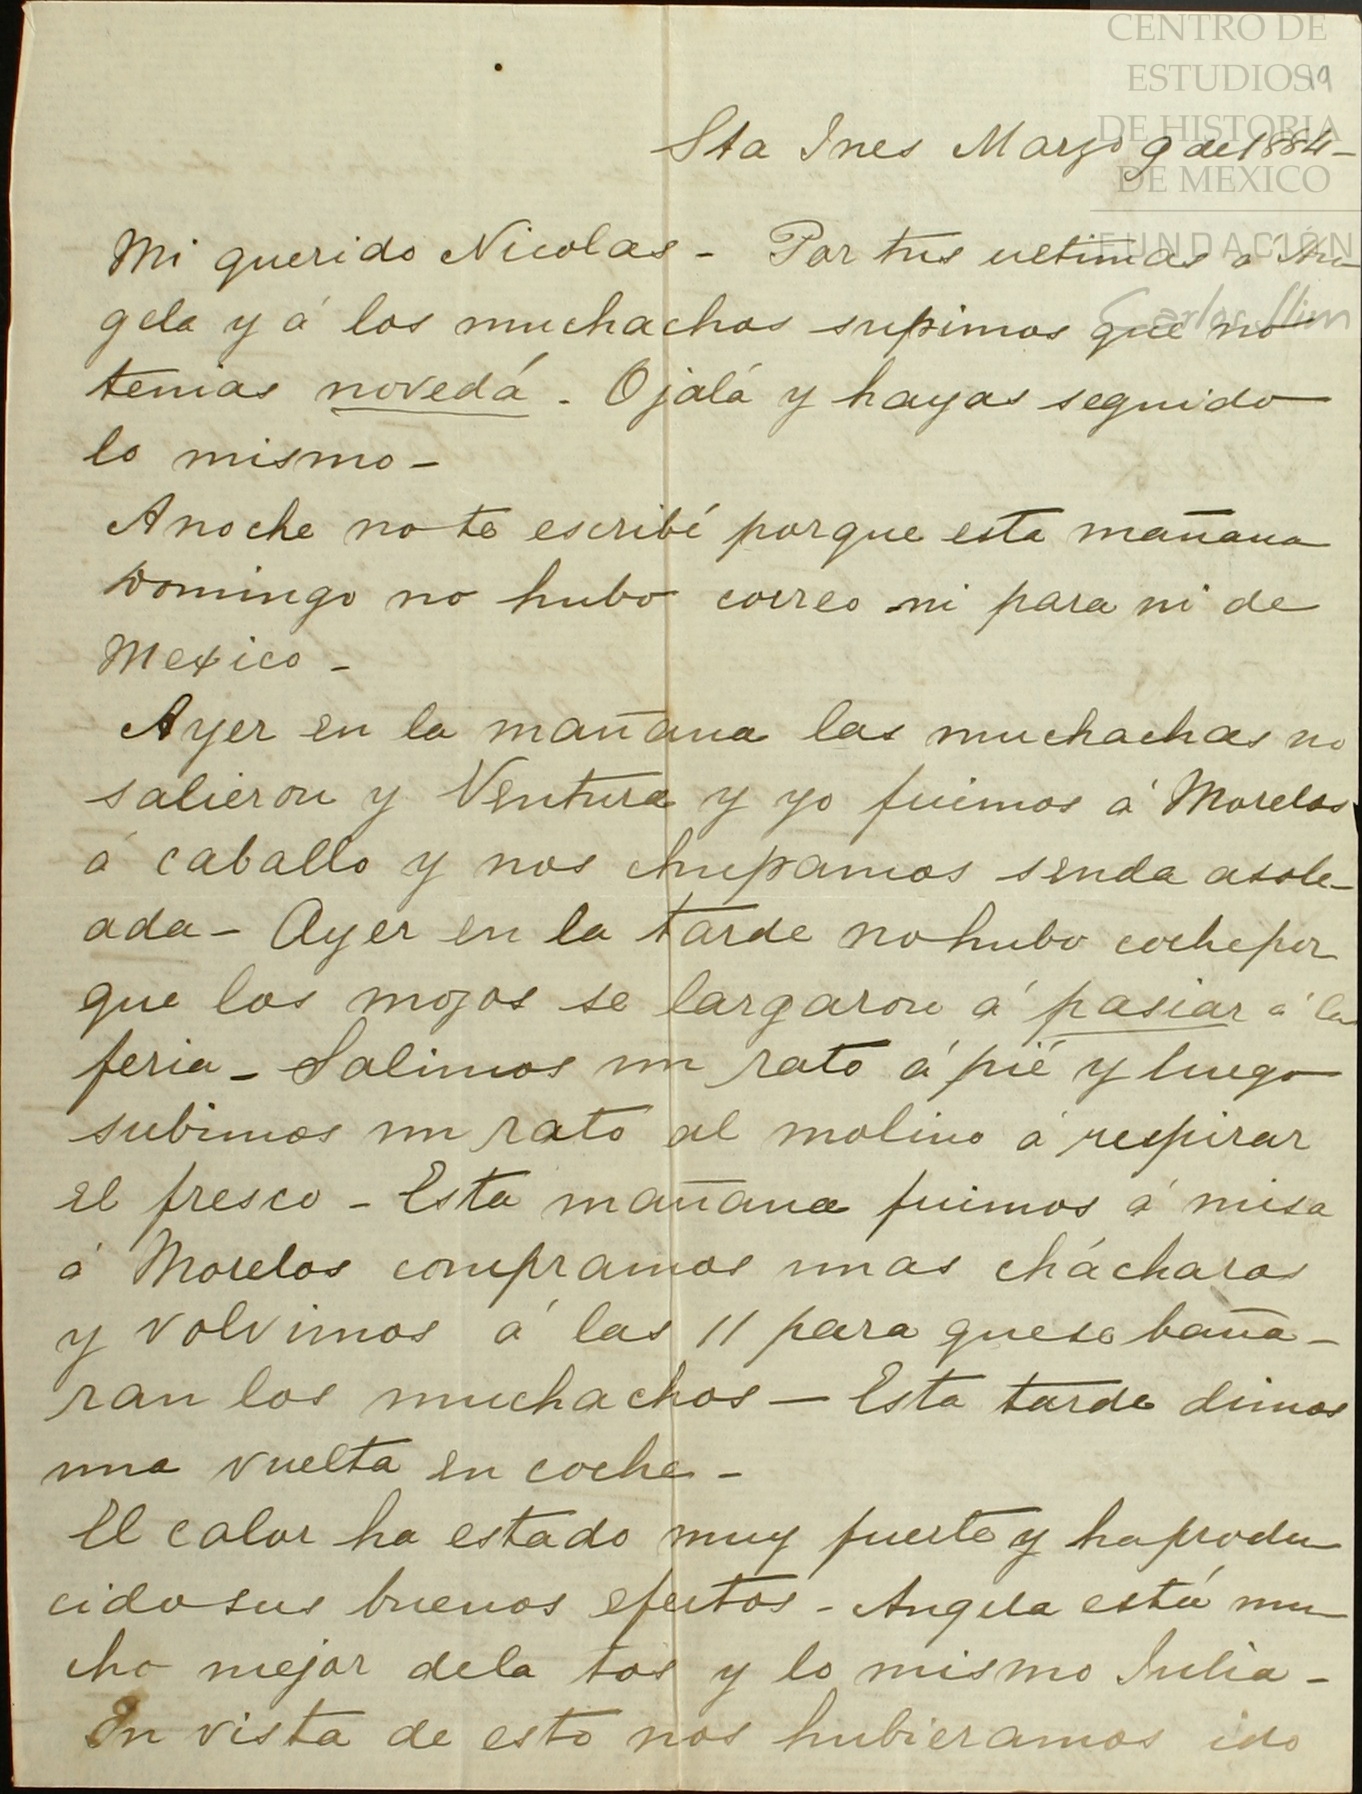 CENTRO DE
ESTUDIOS
19
DE HISTORIA
DE MEXICO
FUNDACIÓN
Carlos Slim
Sta Ines Marzo 9 de 1884-
Mi querido Nicolas - Por tus ultimas á An-
gela y á los muchachos supimos que no
tenias novedá - Ojalá y hayas seguido
lo mismo -
Anoche no te escribí porque esta mañana
Domingo no hubo correo ni para ni de
Mexico -
Ayer en la mañana las muchachas no
salieron y Ventura y yo fuimos á Morelos
á caballo y nos chupamos senda asole-
ada - Ayer en la tarde no hubo coche por
que los mozos se largaron á pasiar á la
feria - Salimos un rato á pié y luego
subimos un rato al molino á respirar
el fresco - Esta mañana fuimos á misa
á Morelos compramos unas chácharas
y volvimos á las 11 para que se baña-
ran los muchachos - Esta tarde dimos
una vuelta en coche -
El calor ha estado muy fuerte y ha produ
cido sus buenos efectos - Angela está mu
cho mejor de la tos y lo mismo Julia -
En vista de esto nos hubieramos ido